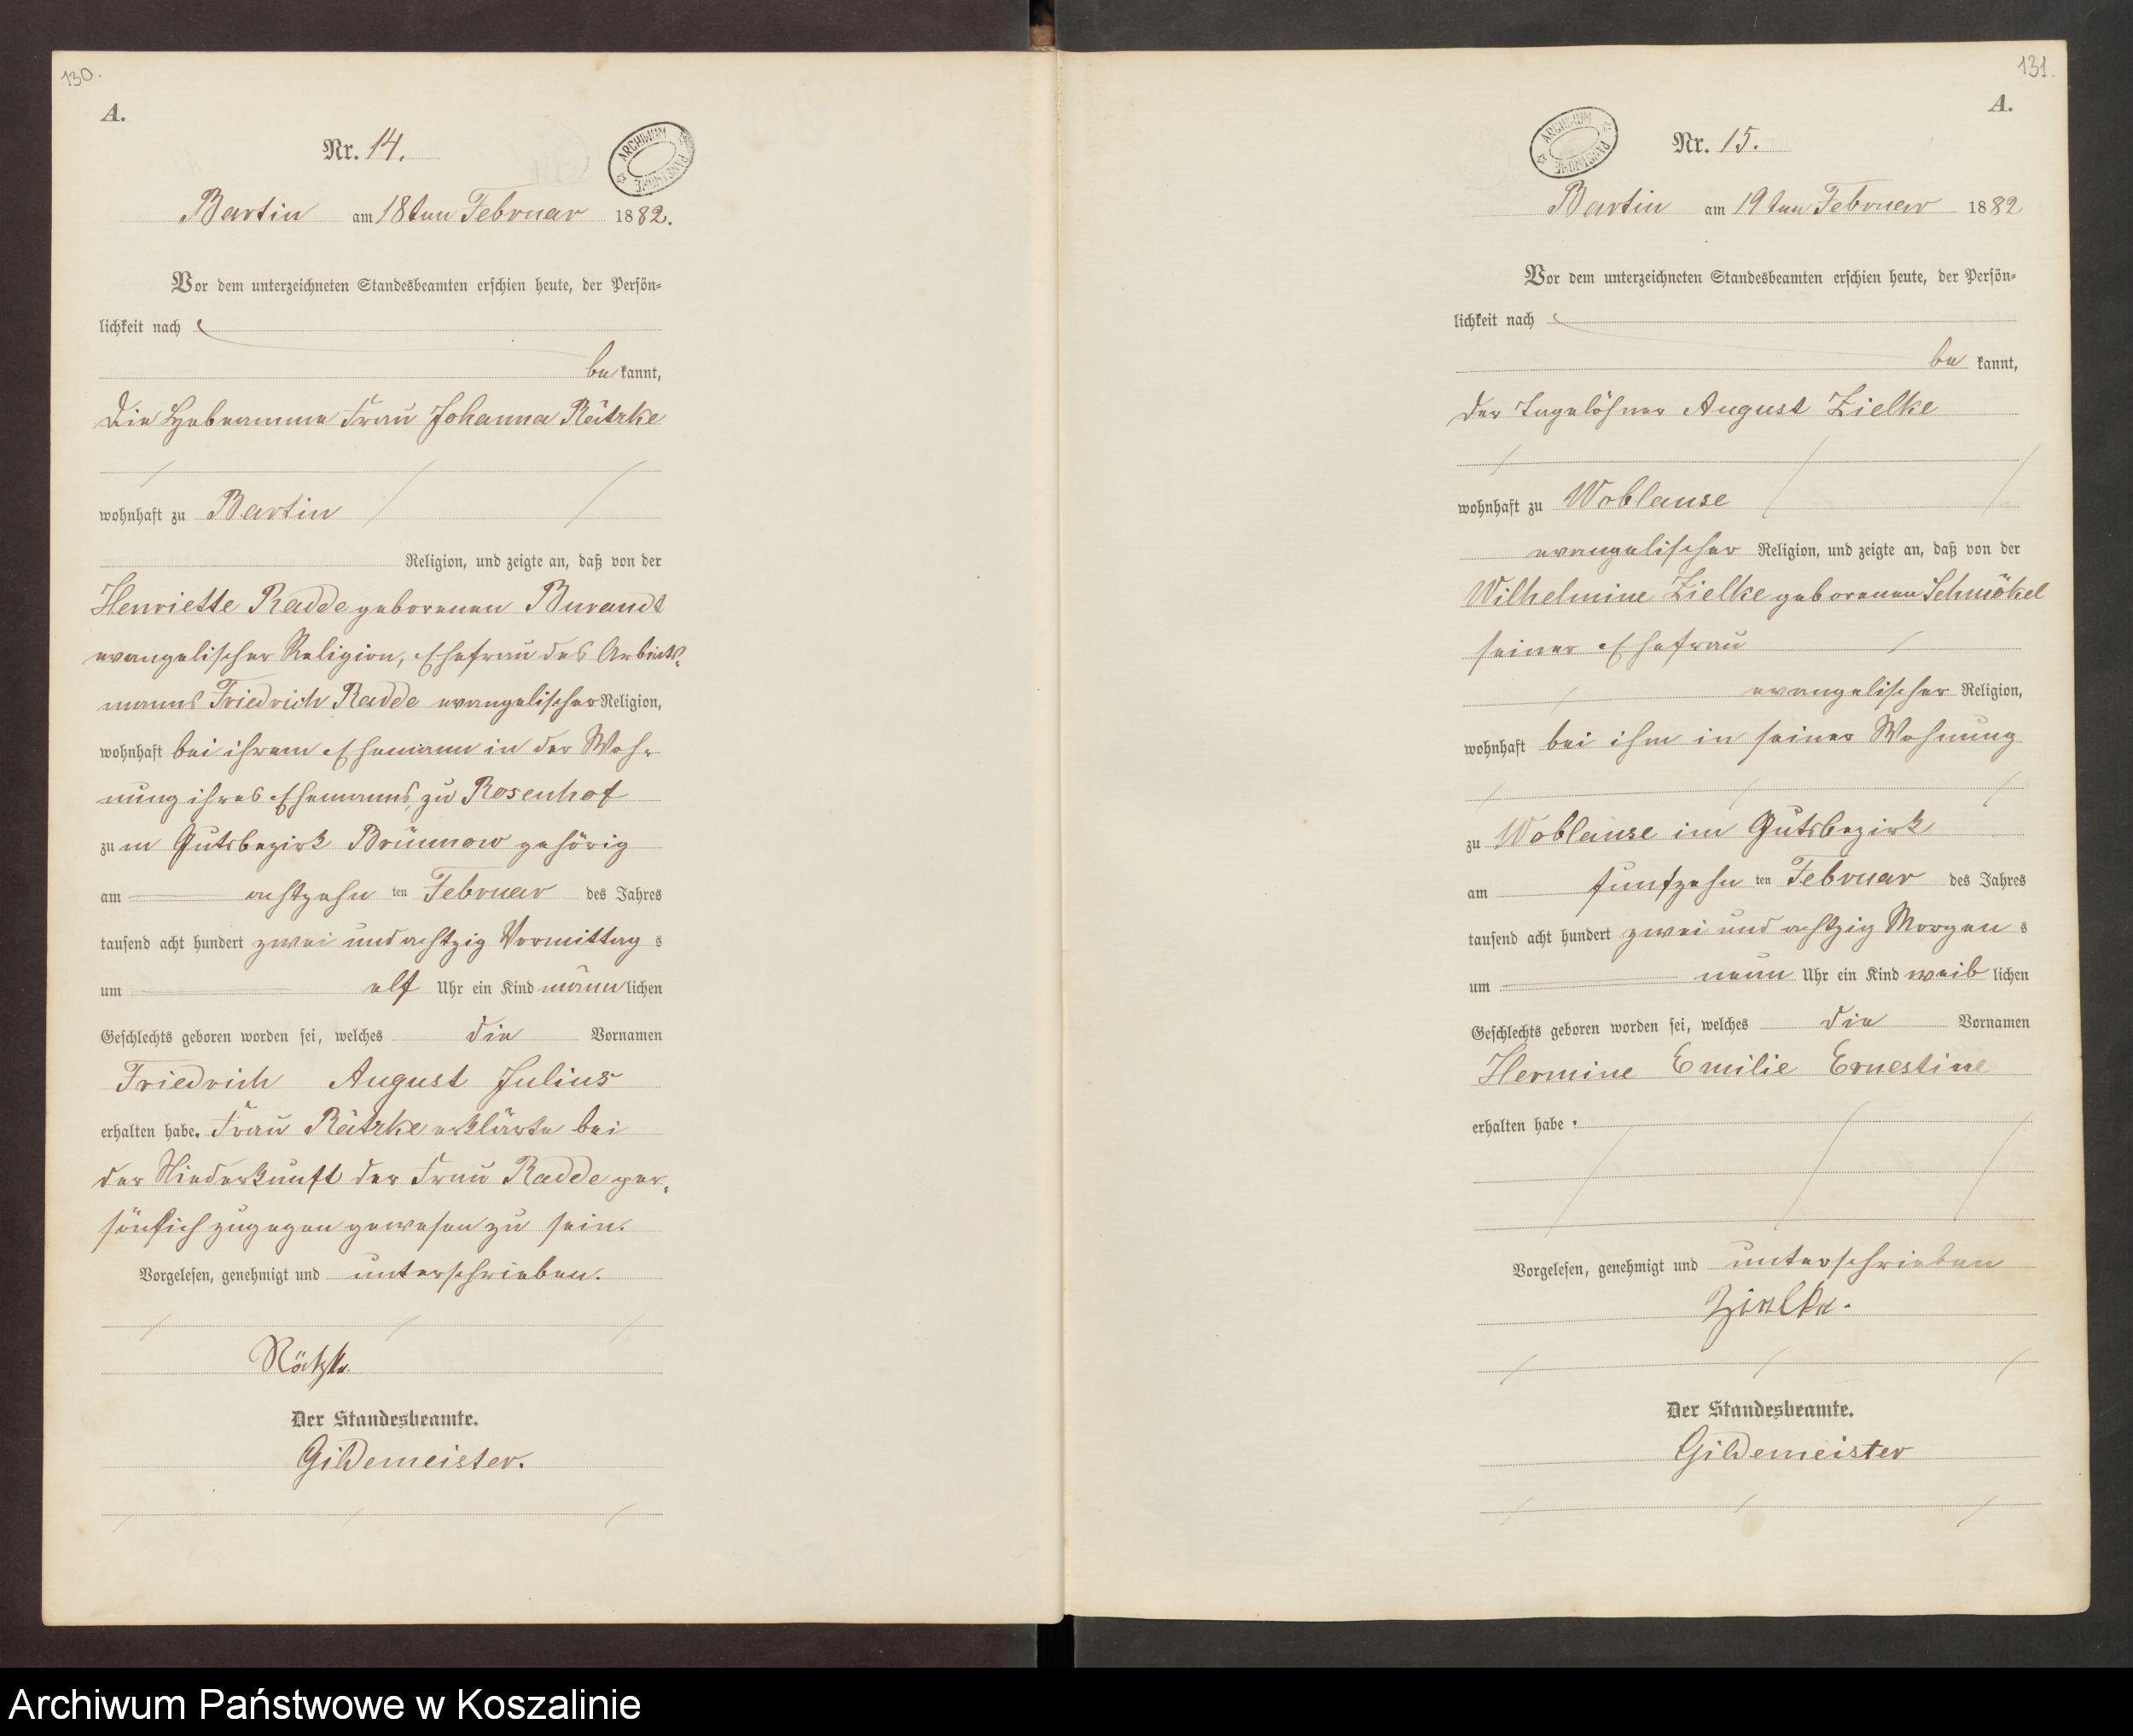 130.
A.
Nr. 14.
ARCHIWUM PAŃSTWOWE
Bartin am 18ten Februar 1882.
Vor dem unterzeichneten Standesbeamten erschien heute, der Persön-
lichkeit nach
be kannt,
die Hebeamme Frau Johanna Rätzke
wohnhaft zu Bartin
Religion, und zeigte an, daß von der
Henriette Radde geborenen Burandt
evangelischer Religion, Ehefrau des Arbeits-
manns Friedrich Radde evangelischer Religion,
wohnhaft bei ihrem Ehemann in der Woh-
nung ihres Ehemanns, zu Rosenhof
zu m Gutsbezirk Brünnow gehörig
am achtzehn ten Februar des Jahres
tausend acht hundert zwei und achtzig Vormittag s
um elf Uhr ein Kind männ lichen
Geschlechts geboren worden sei, welches die Vornamen
Friedrich August Julius
erhalten habe. Frau Rätzke erklärte bei
der Niederkunft der Frau Radde per-
sönlich zugegen gewesen zu sein.
Vorgelesen, genehmigt und unterschrieben.
Rätzke.
Der Standesbeamte.
Gildemeister.
131.
A.
ARCHIWUM PAŃSTWOWE
Nr. 15.
Bartin am 19ten Februar 1882
Vor dem unterzeichneten Standesbeamten erschien heute, der Persön-
lichkeit nach
be kannt,
der Tagelöhner August Zielke
wohnhaft zu Woblanse
evangelischer Religion, und zeigte an, daß von der
Wilhelmine Zielke geborenen Schmökel
seiner Ehefrau
evangelischer Religion,
wohnhaft bei ihm in seiner Wohnung
zu Woblanse im Gutsbezirk
am funfzehn ten Februar des Jahres
tausend acht hundert zwei und achtzig Morgen s
um neun Uhr ein Kind weib lichen
Geschlechts geboren worden sei, welches die Vornamen
Hermine Emilie Ernestine
erhalten habe.
Vorgelesen, genehmigt und unterschrieben
Zielke.
Der Standesbeamte.
Gildemeister
Archiwum Państwowe w Koszalinie